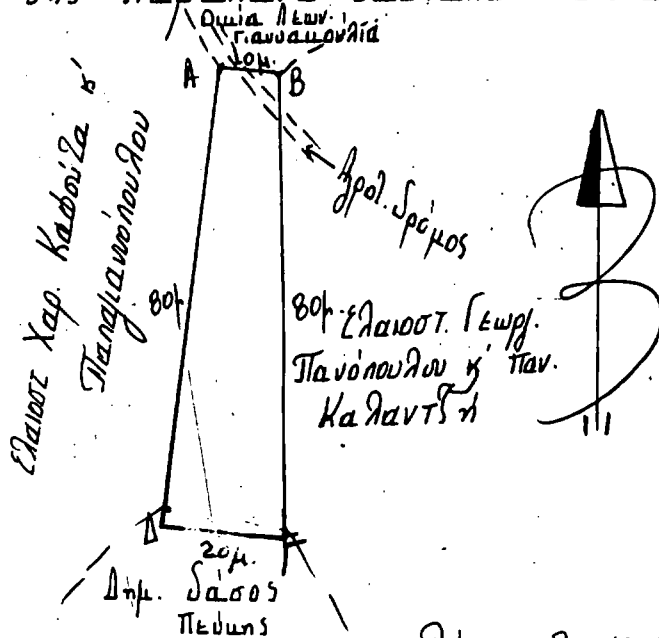 Ομία Λεων.
Γιαννακουλία
10μ.
Α Β
Αγροτ. δρόμος
Ελαιοστ Χαρ. Καφούτζα κ'
Παπαγιαννόπουλου
80μ
80μ. Ελαιοστ. Γεωργ.
Πανόπουλου κ' Παν.
Καλαντζή
Δ
20μ.
Δημ. δάσος
πεύκης